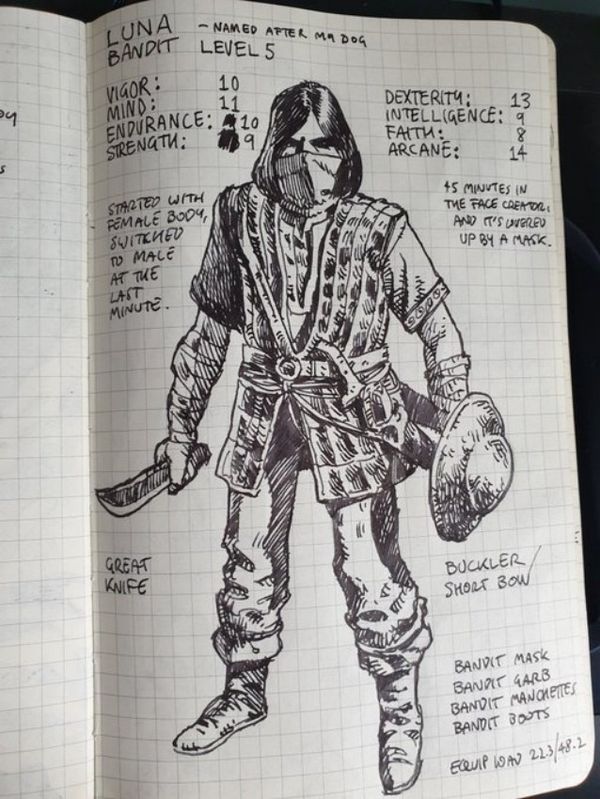 LUNA – NAMED AFTER MY DOG
BANDIT LEVEL 5
VIGOR: 10
MIND: 11
ENDURANCE: 10
STRENGTH: 9
DEXTERITY: 13
INTELLIGENCE: 9
FAITH: 8
ARCANE: 14
STARTED WITH
FEMALE BODY,
SWITCHED
TO MALE
AT THE
LAST
MINUTE.
45 MINUTES IN
THE FACE CREATOR,
AND IT'S COVERED
UP BY A MASK.
GREAT
KNIFE
BUCKLER/
SHORT BOW
BANDIT MASK
BANDIT GARB
BANDIT MANCHETTES
BANDIT BOOTS
EQUIP LOAD 22.3/48.2